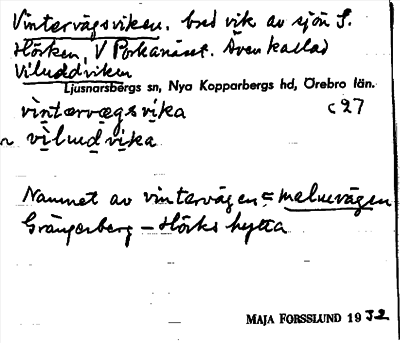 Vintervägsviken. bred vik av sjön S.
Hörken, V Porkanäset. Även kallad
Viluddviken
Ljusnarsbergs sn, Nya Kopparbergs hd, Örebro län.
vintərvægsvika c27
~ viludvika
Namnet av vintervägen = malmvägen
Grängesberg – Hörks hytta
MAJA FORSSLUND 1932